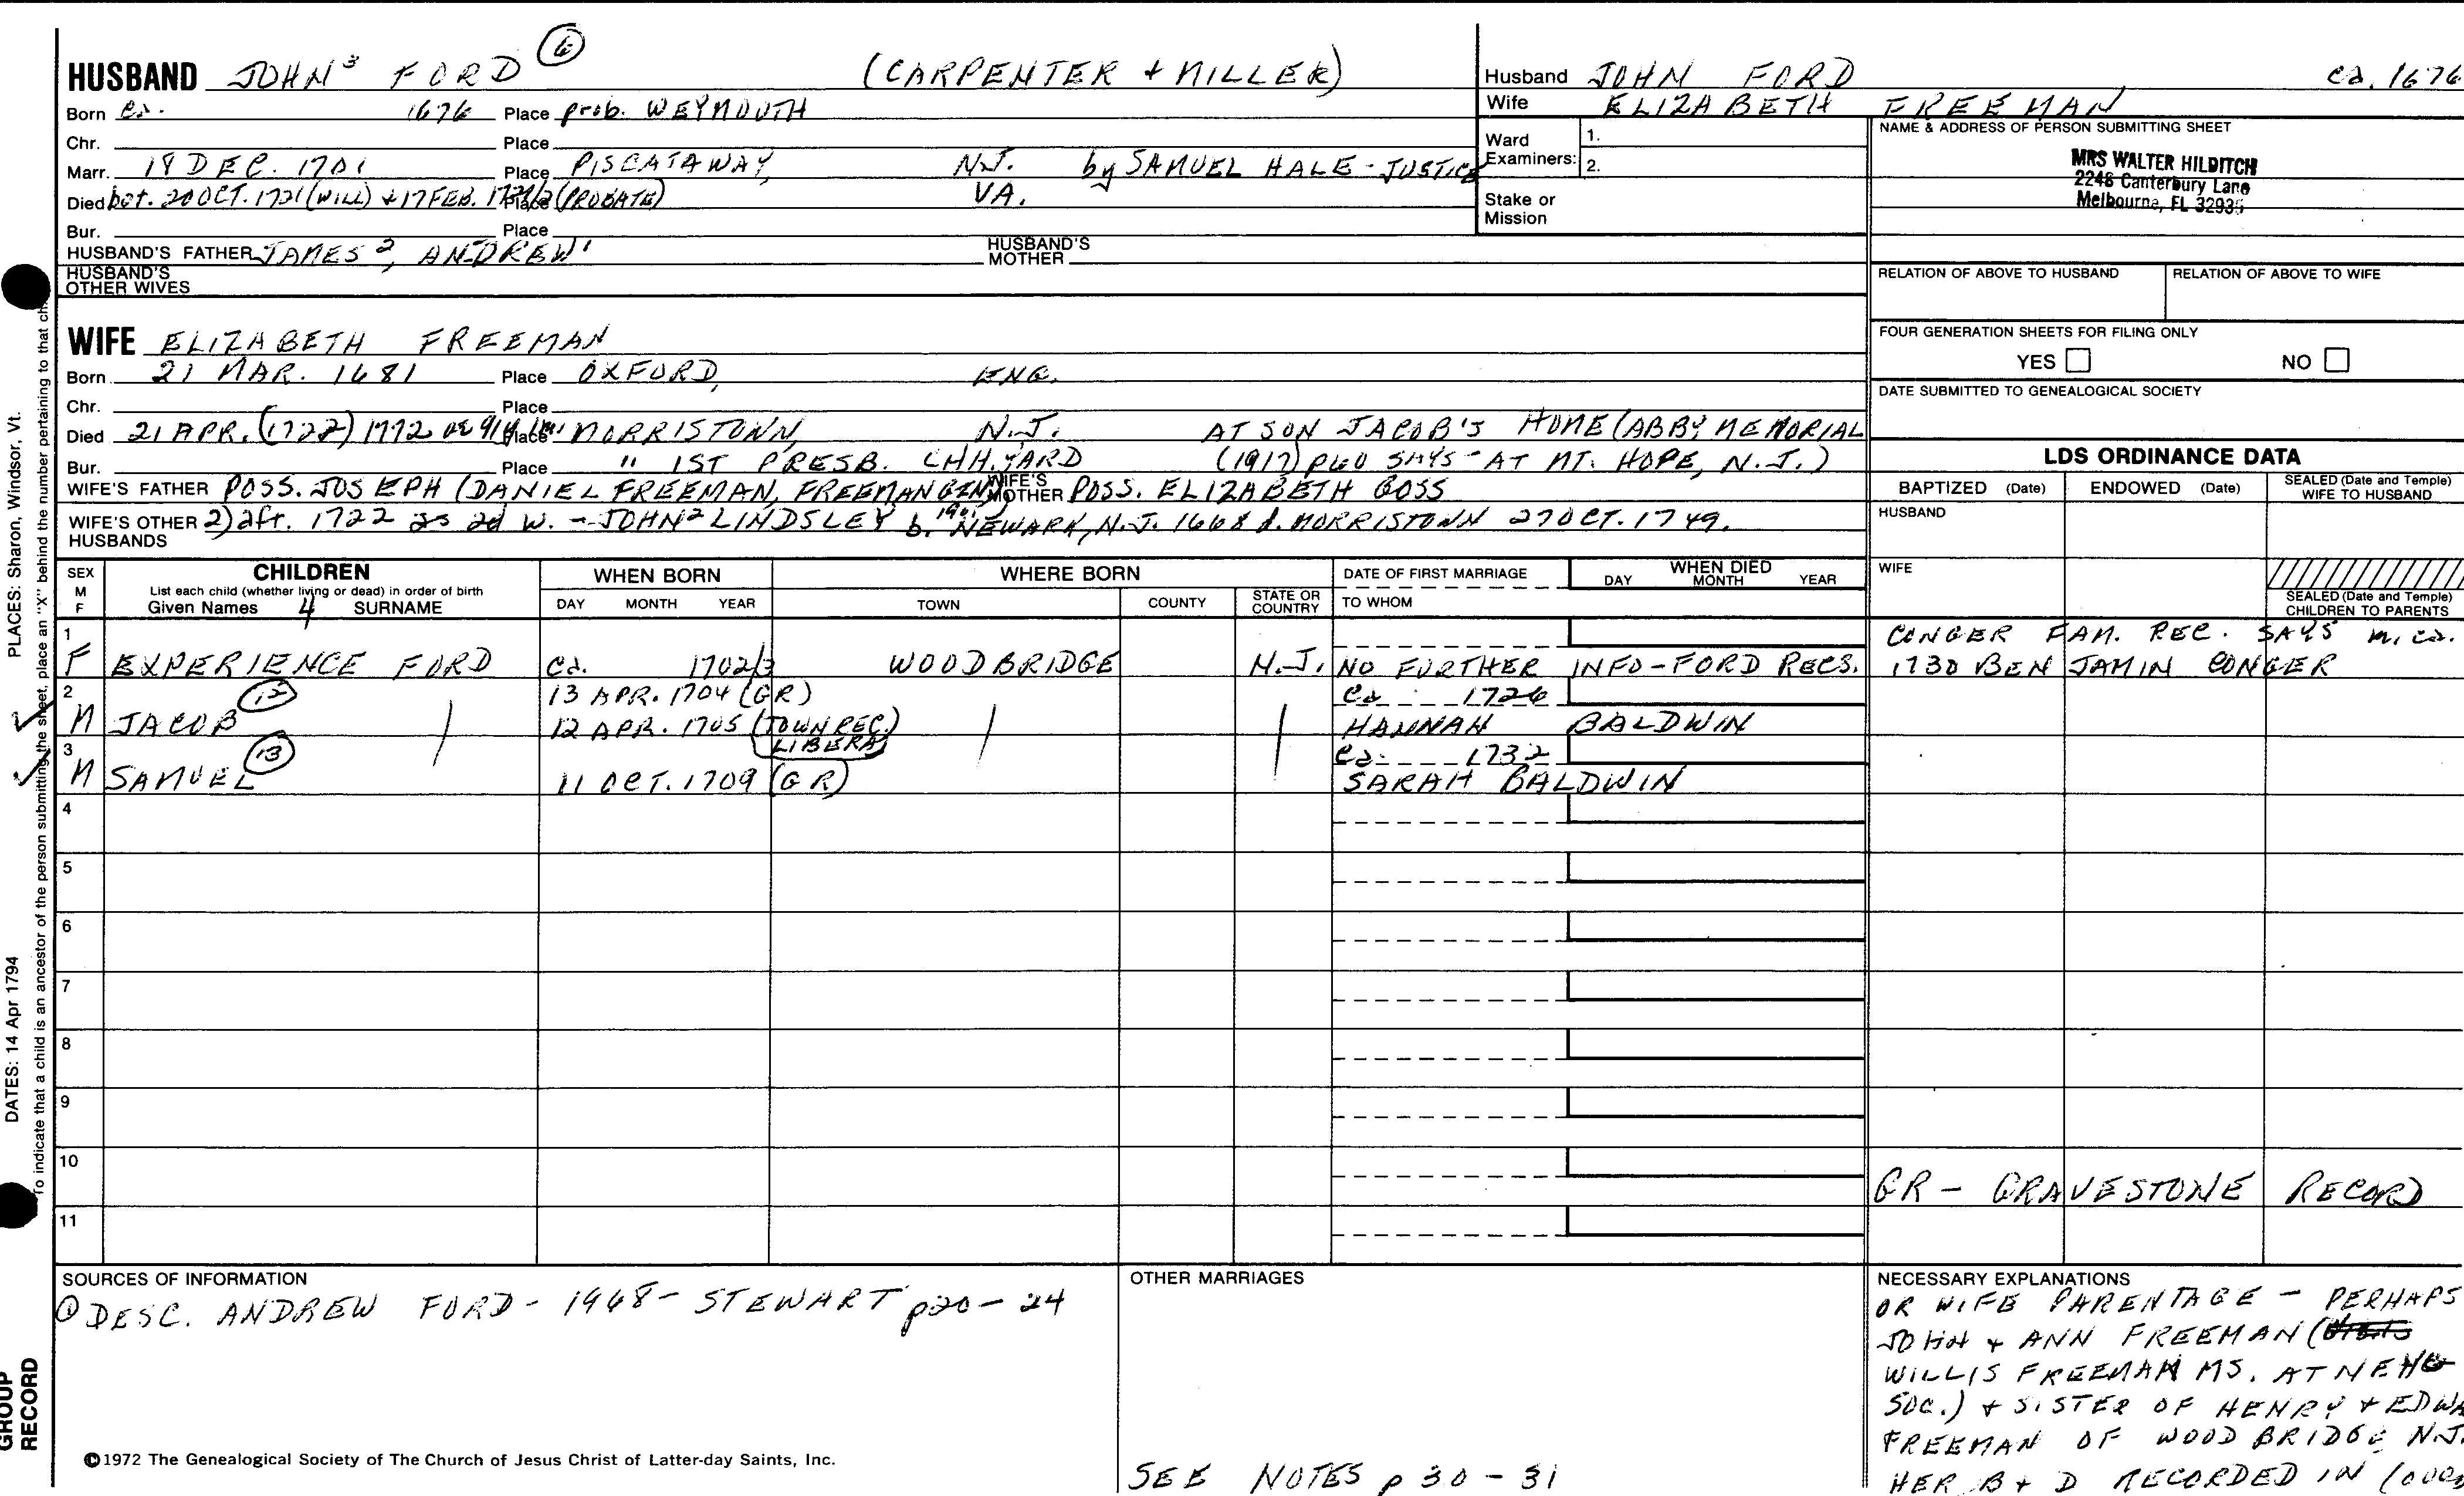 HUSBAND JOHN³ FORD (6) (CARPENTER + MILLER)
Born ca. 1676 Place prob. WEYMOUTH
Chr. Place
Marr. 18 DEC. 1701 Place PISCATAWAY, N.J. by SAMUEL HALE - JUSTICE
Died bet. 20 OCT. 1721 (WILL) + 17 FEB. 1721/2 Place (PROBATE) VA.
Bur. Place
HUSBAND'S FATHER JAMES², ANDREW¹ HUSBAND'S MOTHER
HUSBAND'S OTHER WIVES
Husband JOHN FORD ca. 1676
Wife ELIZABETH FREEMAN
Ward Examiners: 1.
2.
Stake or Mission
NAME & ADDRESS OF PERSON SUBMITTING SHEET
MRS WALTER HILDITCH
2248 Canterbury Lane
Melbourne, FL 32935
RELATION OF ABOVE TO HUSBAND RELATION OF ABOVE TO WIFE
FOUR GENERATION SHEETS FOR FILING ONLY
YES NO
DATE SUBMITTED TO GENEALOGICAL SOCIETY
WIFE ELIZABETH FREEMAN
Born 21 MAR. 1681 Place OXFORD, ENG.
Chr. Place
Died 21 APR. (1722) 1772 Place MORRISTOWN, N.J. AT SON JACOB'S HOME (ABBY MEMORIAL
Bur. Place " 1ST PRESB. CHH. YARD (1917) p40 SAYS - AT MT. HOPE, N.J.)
WIFE'S FATHER POSS. JOSEPH (DANIEL FREEMAN, FREEMAN GEN. WIFE'S MOTHER POSS. ELIZABETH GOSS
WIFE'S OTHER HUSBANDS 2) aft. 1722 as 2d w. - JOHN² LINDSLEY b. NEWARK, N.J. 1668 d. MORRISTOWN 27 OCT. 1749.
LDS ORDINANCE DATA
BAPTIZED (Date) ENDOWED (Date) SEALED (Date and Temple) WIFE TO HUSBAND
HUSBAND
WIFE
SEALED (Date and Temple) CHILDREN TO PARENTS
SEX M F CHILDREN List each child (whether living or dead) in order of birth Given Names 4 SURNAME
WHEN BORN DAY MONTH YEAR
WHERE BORN TOWN COUNTY STATE OR COUNTRY
DATE OF FIRST MARRIAGE TO WHOM
WHEN DIED DAY MONTH YEAR
1 F EXPERIENCE FORD ca. 1702/3 WOODBRIDGE N.J. NO FURTHER INFO - FORD RECS.
CONGER FAM. REC. SAYS m. ca.
1730 BENJAMIN CONGER
2 M JACOB (12) 13 APR. 1704 (GR) ca. 1726
12 APR. 1705 (TOWN REC. LIBERA) HANNAH BALDWIN
3 M SAMUEL (13) 11 OCT. 1709 (GR) ca. 1732
SARAH BALDWIN
4
5
6
7
8
9
10
GR - GRAVESTONE RECORD
11
SOURCES OF INFORMATION
① DESC. ANDREW FORD - 1968 - STEWART p20-24
©1972 The Genealogical Society of The Church of Jesus Christ of Latter-day Saints, Inc.
OTHER MARRIAGES
SEE NOTES p 30-31
NECESSARY EXPLANATIONS
OR WIFE PARENTAGE - PERHAPS
JOHN + ANN FREEMAN (
WILLIS FREEMAN MS. AT NEHG
SOC.) + SISTER OF HENRY + EDWA
FREEMAN OF WOODBRIDGE N.J.
HER B + D RECORDED IN (over
PLACES: Sharon, Windsor, Vt.
DATES: 14 Apr 1794
To indicate that a child is an ancestor of the person submitting the sheet, place an "X" behind the number pertaining to that ch
GROUP RECORD